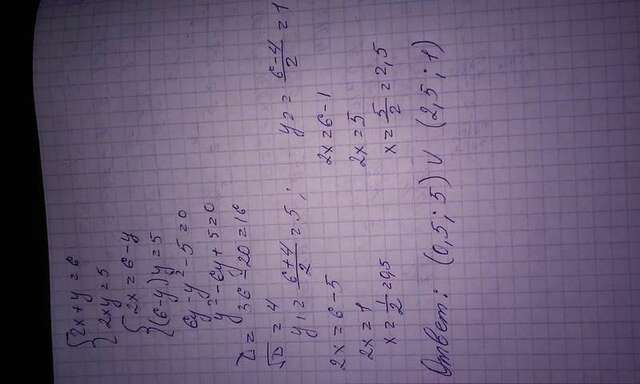 {2x+y=6
{2xy=5
{2x=6-y
{(6-y)y=5
6y-y²-5=0
y²-6y+5=0
D=36-20=16
√D=4
y₁=(6+4)/2=5; y₂=(6-4)/2=1
2x=6-5 2x=6-1
2x=1 2x=5
x=1/2=0,5 x=5/2=2,5
Ответ: (0,5; 5) ∪ (2,5; 1)